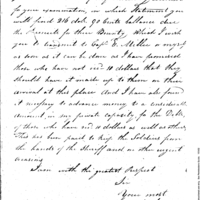 for your examination, in which Statement you
will find 216 doll. 90 Cents ballance due
the Recruits for their Bounty, Which I wish
you to transmit to Capt. E. Miller or myself
as soon as it can be done as I have promised
those who have not rec'd 10 dollars that they
should have it made up to them on their
arrival at this place and I have also found
it necessary to advance money to a considerable
amount in my private capacity, for the Debts
of those who have rec'd 10 dollars as well as others
This has been paid to keep the Soldiers from
the hands of the Sheriff and on other urgent
occasions
I am with the greatest Respect
Sir
Your most